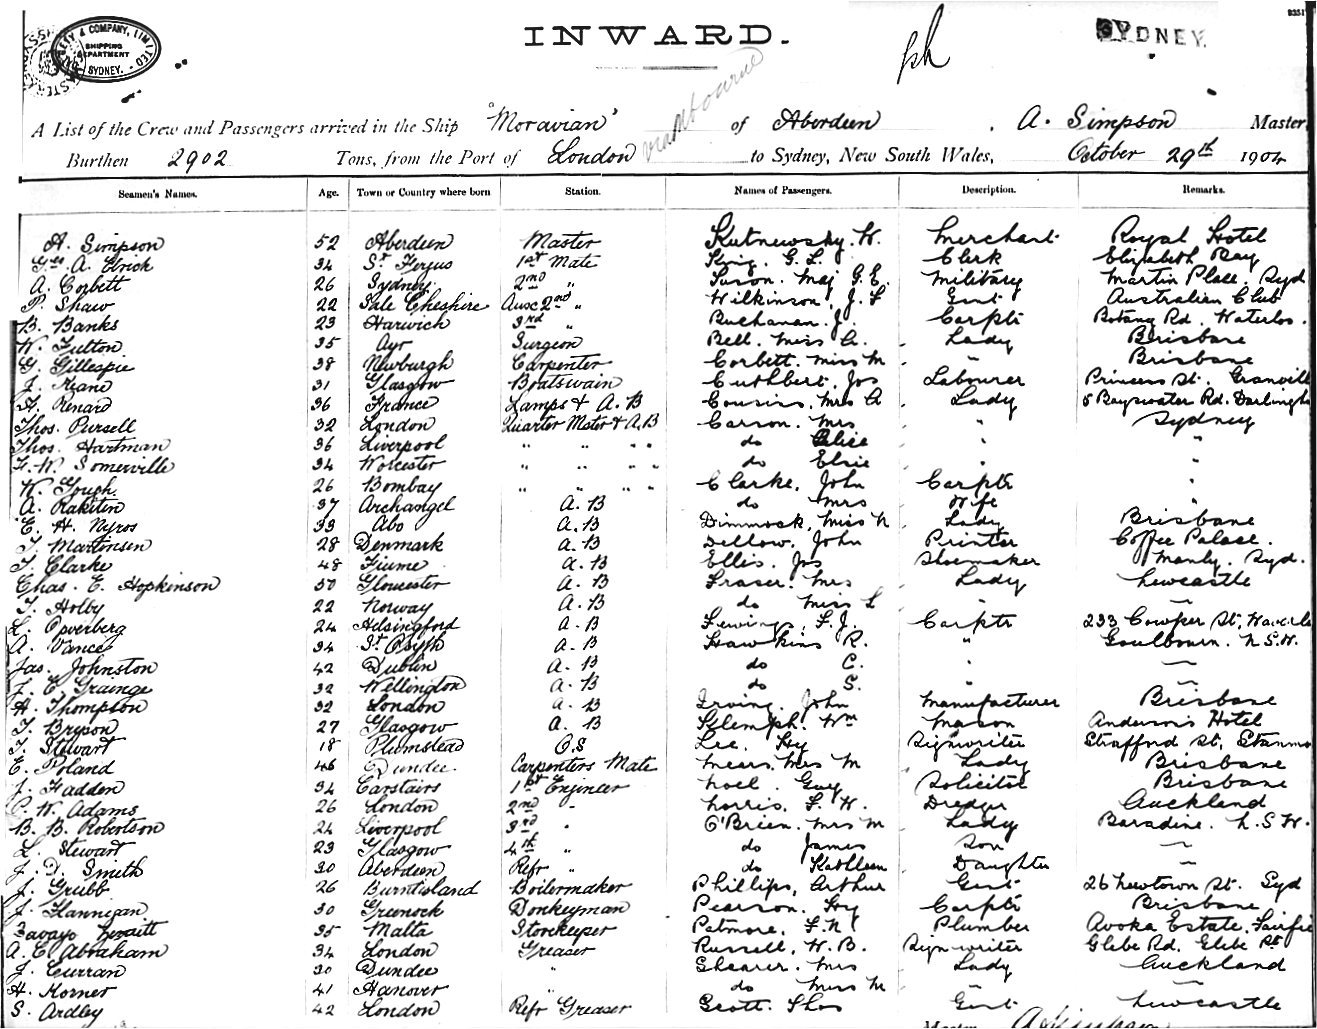 & COMPANY, LIMITED
SHIPPING
DEPARTMENT
SYDNEY.
INWARD.
ph
SYDNEY.
8351
via Melbourne
A List of the Crew and Passengers arrived in the Ship "Moravian" of Aberdeen, A. Simpson Master,
Burthen 2902 Tons, from the Port of London to Sydney, New South Wales, October 29th 1904
Seamen's Names. Age. Town or Country where born Station. Names of Passengers. Description. Remarks.
A. Simpson 52 Aberdeen Master Kutnewsky. W. Merchant Royal Hotel
Geo. A. Elrick 34 St Fergus 1st Mate King. G. L. Clerk Elizabeth Bay
A. Corbett 26 Sydney 2nd " Maj G. E. Military Martin Place, Syd
P. Shaw 22 Sale Cheshire Aux 2nd " Wilkinson, J. F. Gent Australian Club
B. Banks 23 Harwich 3rd " Buchanan. J. Carptr Botany Rd. Waterloo.
W. Fulton 35 Ayr Surgeon Bell. Miss A. Lady Brisbane
G. Gillespie 38 Newburgh Carpenter Corbett. Miss M " Brisbane
J. Keane 31 Glasgow Boatswain Cuthbert. Jos Labourer Princess St. Granville
A. Renard 36 France Lamps & A. B Cousins. Mrs A Lady 5 Bayswater Rd. Darlingh
Thos. Pursell 32 London Quarter Master & A.B Carson. Mrs " Sydney
Thos. Hartman 36 Liverpool " " " " do Alice " "
F. W. Somerville 34 Worcester " " " " do Elsie " "
W. Gough. 26 Bombay " " " " Clarke, John Carptr "
A. Rakiten 37 Archangel A. B do Mrs Wife
E. H. Nyros 33 Abo A. B Dimmock, Miss N Lady Brisbane
T. Martinsen 28 Denmark A. B Dellow, John Printer Coffee Palace.
T. Clarke 48 Fiume A. B Ellis, Jos Shoemaker Manly, Syd.
Chas. E. Hopkinson 50 Gloucester A. B Fraser. Mrs Lady Newcastle
T. Holby 22 Norway A. B do Miss L " "
L. Opverberg 24 Helsingford A. B Fewings, F. J. Carptr 233 Cowper St, Waverle
A. Vance 34 St Osyth A. B Hawkins R. " Goulbourn. N.S.W.
Jas. Johnston 42 Dublin A. B do C. " "
J. E Grainge 32 Wellington A. B do S. " "
A. Thompson 32 London A. B Irving. John Manufacturer Brisbane
T. Bryson 27 Glasgow A. B Wm Mason Hotel
T. Stewart 18 Plumstead O.S Lee. Hy Signwriter Strafford St, Stanmo
E. Poland 46 Dundee. Carpenters Mate Mears. Mrs M Lady Brisbane
J. Fadden 34 Carstairs 1st Engineer Noel. Guy Solicitor Brisbane
P. W. Adams 26 London 2nd " Norris, F. W. Dredger Auckland
B. B. Robertson 24 Liverpool 3rd " O'Brien. Mrs M Lady Baradine. N.S.W.
L. Stewart 23 Glasgow 4th " do James Son "
J. D. Smith 30 Aberdeen Refr " do Kathleen Daughter "
J. Grubb 26 Burntisland Boilermaker Phillips, Arthur Gent 26 Newtown St. Syd
J. Flannigan 30 Greenock Donkeyman Pearson. Hy Carptr Brisbane
35 Malta Storekeeper Patmore, F. N Plumber Avoka Estate, Fairfie
A. C. Abraham 34 London Greaser Russell, W. B. Signwriter Glebe Rd. Glebe Pt
J. Curran 30 Dundee " Shearer. Mrs Lady Auckland
H. Korner 41 Hanover " do Miss M " "
S. Ardley 42 London Refr Greaser Scott. Thos Gent Newcastle
Master